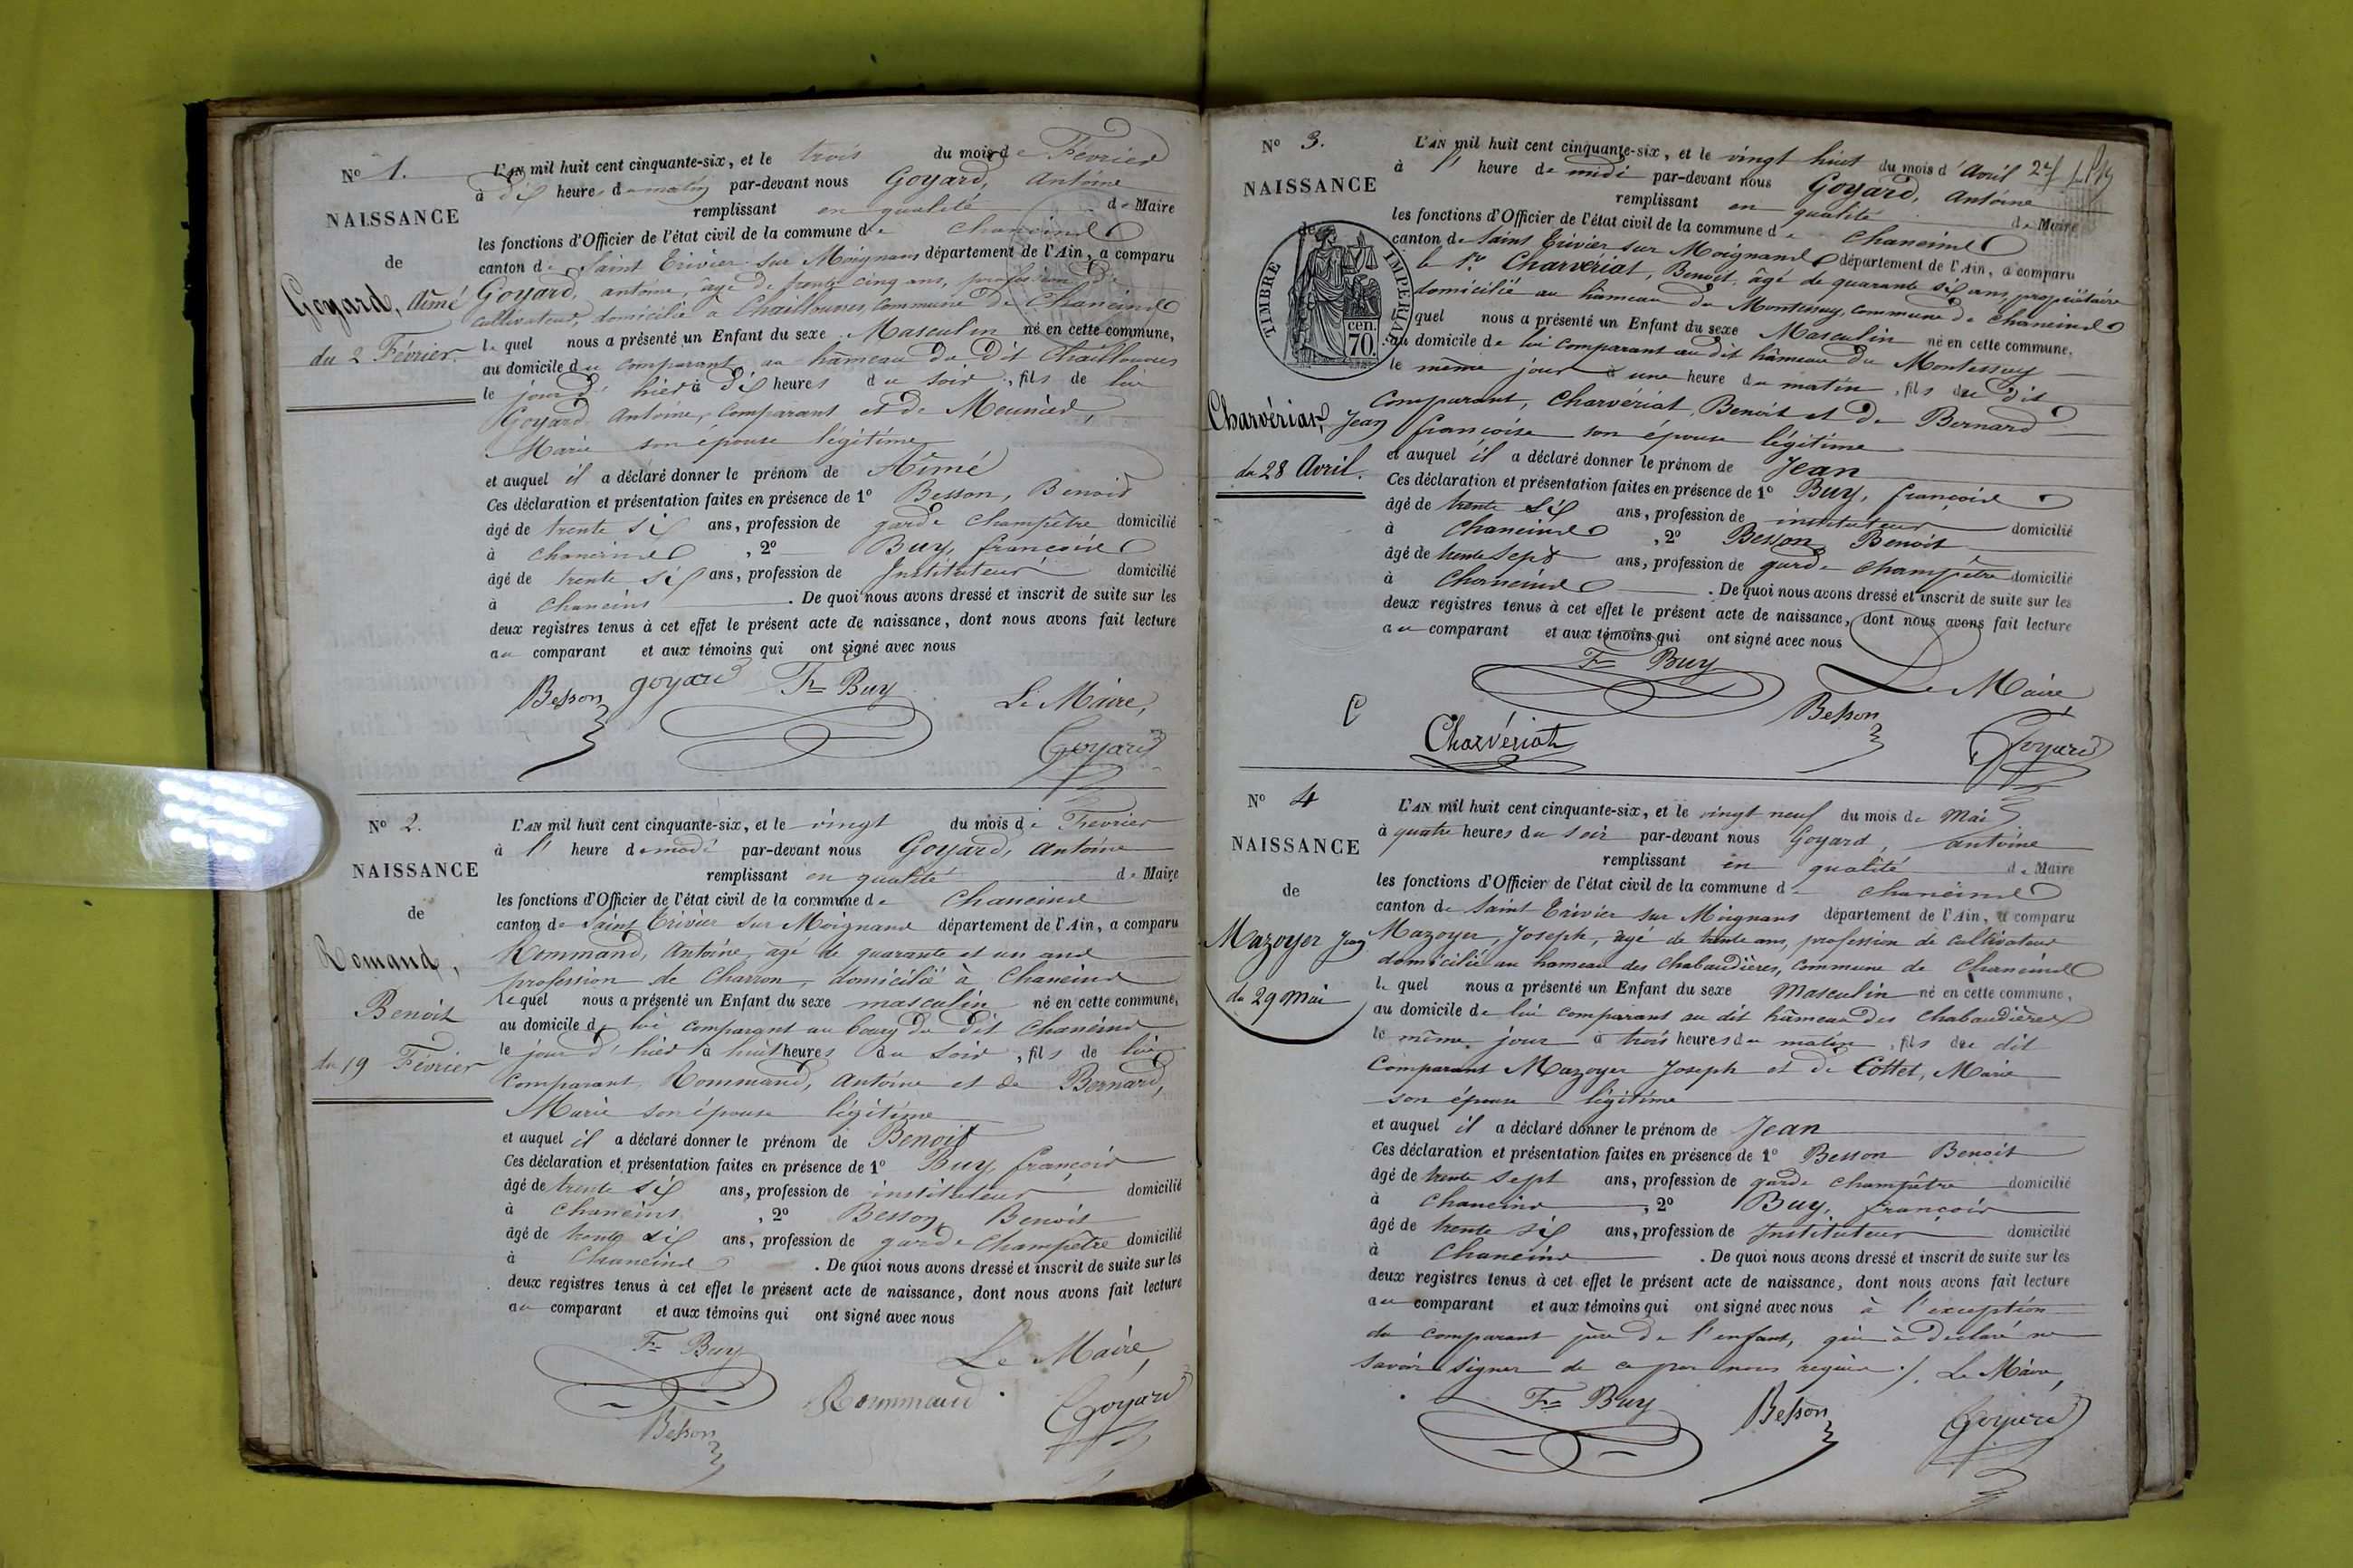 N° 1.
NAISSANCE
de
Goyard, Aimé
du 2 Février.
L'AN mil huit cent cinquante-six, et le trois du mois de Février
à dix heures du matin par-devant nous Goyard, Antoine
remplissant en qualité de Maire
les fonctions d'Officier de l'état civil de la commune de Chaneins
canton de Saint Trivier sur Moignans département de l'Ain, a comparu
Goyard, antoine, agé de trente cinq ans, profession de
cultivateur, domicilié à Chaillouvres, commune de Chaneins
le quel nous a présenté un Enfant du sexe Masculin né en cette commune,
au domicile du comparant au hâmeau du dit Chaillouvres
le jour d'hier à dix heures du soir, fils de lui
Goyard Antoine, comparant et de Meunier,
Marie son épouse légitime
et auquel il a déclaré donner le prénom de Aimé
Ces déclaration et présentation faites en présence de 1° Besson, Benoit
âgé de trente six ans, profession de garde Champêtre domicilié
à Chaneins, 2° Buy, françois
âgé de trente six ans, profession de Instituteur domicilié
à Chaneins. De quoi nous avons dressé et inscrit de suite sur les
deux registres tenus à cet effet le présent acte de naissance, dont nous avons fait lecture
au comparant et aux témoins qui ont signé avec nous
Besson goyard Fs Buy Le Maire,
Goyard
N° 2.
NAISSANCE
de
Romand,
Benoit
du 19 Février
L'AN mil huit cent cinquante-six, et le vingt du mois de Fevrier
à l' heure de midi par-devant nous Goyard, Antoine
remplissant en qualité de Maire
les fonctions d'Officier de l'état civil de la commune de Chaneins
canton de Saint Trivier sur Moignans département de l'Ain, a comparu
Rommand, Antoine, agé de quarante et un ans
profession de Charron, domicilié à Chaneins
lequel nous a présenté un Enfant du sexe masculin né en cette commune,
au domicile de lui comparant au bourg du dit Chaneins
le jour d'hier à huit heures du soir, fils de lui
Comparant Rommand, Antoine et de Bernard,
Marie son épouse légitime
et auquel il a déclaré donner le prénom de Benoit
Ces déclaration et présentation faites en présence de 1° Buy, françois
âgé de trente six ans, profession de instituteur domicilié
à Chaneins, 2° Besson, Benoit
âgé de trente six ans, profession de garde Champêtre domicilié
à Chaneins. De quoi nous avons dressé et inscrit de suite sur les
deux registres tenus à cet effet le présent acte de naissance, dont nous avons fait lecture
au comparant et aux témoins qui ont signé avec nous
Fs Buy Le Maire,
Rommand Goyard
Besson
N° 3.
NAISSANCE
de
TIMBRE IMPERIAL
cen.
70.
Charvériat, Jean
du 28 Avril.
L'AN mil huit cent cinquante-six, et le vingt huit du mois d'Avril
à l' heure de midi par-devant nous Goyard, Antoine
remplissant en qualité de Maire
les fonctions d'Officier de l'état civil de la commune de Chaneins
canton de Saint Trivier sur Moignans département de l'Ain, a comparu
le Sr Charvériat, Benoit, âgé de quarante six ans, propriétaire
domicilié au hâmeau du Montessuy, commune de Chaneins
quel nous a présenté un Enfant du sexe Masculin né en cette commune,
au domicile de lui comparant au dit hâmeau du Montessuy
le même jour à une heure du matin, fils du dit
Comparant, Charvériat, Benoit et de Bernard
françoise son épouse légitime
et auquel il a déclaré donner le prénom de Jean
Ces déclaration et présentation faites en présence de 1° Buy, françois
âgé de trente six ans, profession de instituteur domicilié
à Chaneins, 2° Besson, Benoit
âgé de trente sept ans, profession de garde Champêtre domicilié
à Chaneins. De quoi nous avons dressé et inscrit de suite sur les
deux registres tenus à cet effet le présent acte de naissance, dont nous avons fait lecture
au comparant et aux témoins qui ont signé avec nous
Fs Buy Le Maire
Besson
Charvériat Goyard
N° 4
NAISSANCE
de
Mazoyer Jean
du 29 Mai
L'AN mil huit cent cinquante-six, et le vingt neuf du mois de Mai
à quatre heures du soir par-devant nous Goyard, antoine
remplissant en qualité de Maire
les fonctions d'Officier de l'état civil de la commune de Chaneins
canton de Saint Trivier sur Moignans département de l'Ain, a comparu
Mazoyer, Joseph, agé de trente ans, profession de cultivateur
domicilié au hameau des Chabaudières, Commune de Chaneins
le quel nous a présenté un Enfant du sexe Masculin né en cette commune,
au domicile de lui comparant au dit hâmeau des Chabaudières
le même jour à trois heures du matin, fils du dit
Comparant Mazoyer Joseph et de Cottet, Marie
son épouse légitime
et auquel il a déclaré donner le prénom de Jean
Ces déclaration et présentation faites en présence de 1° Besson Benoit
âgé de trente sept ans, profession de garde champêtre domicilié
à Chaneins, 2° Buy, françois
âgé de trente six ans, profession de Instituteur domicilié
à Chaneins. De quoi nous avons dressé et inscrit de suite sur les
deux registres tenus à cet effet le présent acte de naissance, dont nous avons fait lecture
au comparant et aux témoins qui ont signé avec nous à l'exception
du comparant père de l'enfant, qui a déclaré ne
savoir signer de ce par nous requis ./. Le Maire,
Fs Buy Besson Goyard